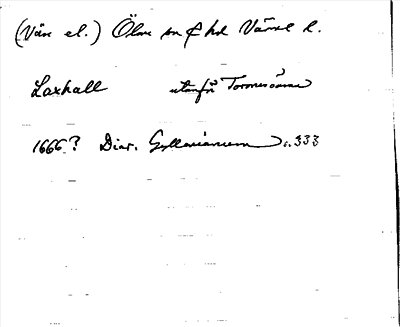 (Vän el.) Ölme sn & hd Värml l.
Laxhall utanför
1666? Diar. Gyllenianum s. 333